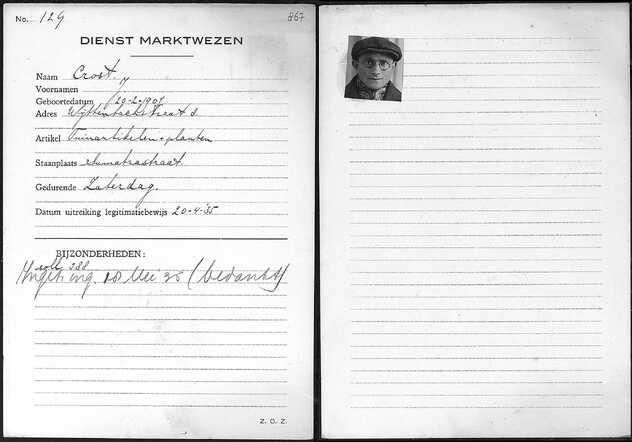 No. 129 867
DIENST MARKTWEZEN
Naam Crost.
Voornamen J
Geboortedatum 29-2-1907
Adres Wijttenbachstraat 3
Artikel Tuinartikelen + planten
Staanplaats Sumatrastraat
Gedurende Zaterdag.
Datum uitreiking legitimatiebewijs 20-4-'35
BIJZONDERHEDEN:
voll 288
Ingetr. ing. 18 Mei 35 (bedankt)
Z. O. Z.